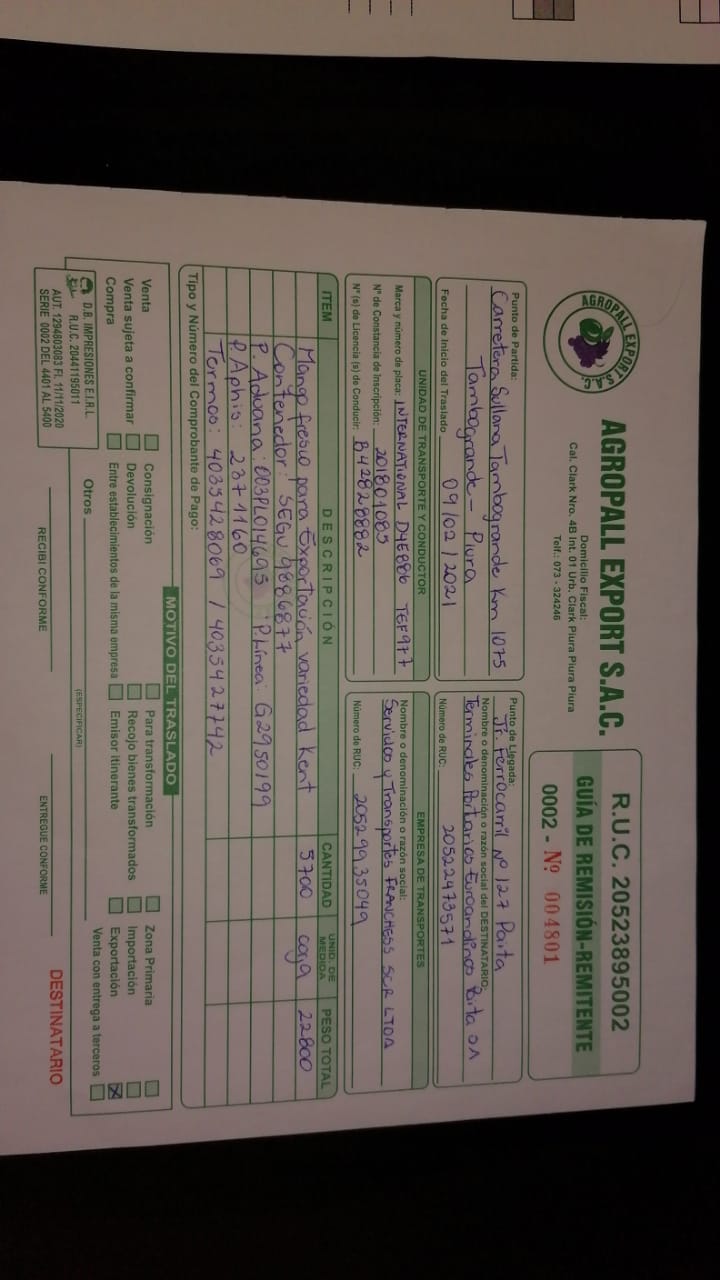 AGROPALL EXPORT S.A.C.
AGROPALL EXPORT S.A.C.
Domicilio Fiscal:
Cal. Clark Nro. 4B Int. 01 Urb. Clark Piura Piura Piura
Telf.: 073 - 324246
R.U.C. 20523895002
GUÍA DE REMISIÓN-REMITENTE
0002 - Nº 004801
Punto de Partida:
Carretera Sullana Tambogrande Km 1075
Tambogrande - Piura
Fecha de Inicio del Traslado 09/02/2021
Punto de Llegada:
Jr. Ferrocarril Nº 127 Paita
Nombre o denominación o razón social del DESTINATARIO:
Terminales Portuarios Euroandinos Paita SA
Número de RUC: 20522473571
UNIDAD DE TRANSPORTE Y CONDUCTOR
Marca y número de placa: INTERNATIONAL D4E886 TEF977
Nº de Constancia de Inscripción: 201801085
Nº (s) de Licencia (s) de Conducir: B42828882
EMPRESA DE TRANSPORTES
Nombre o denominación o razón social:
Servicios y Transportes FRANCHESS SCR LTDA
Número de RUC: 20529935049
ITEM DESCRIPCIÓN CANTIDAD UNID. DE MEDIDA PESO TOTAL
Mango fresco para Exportación variedad Kent 5700 caja 22800
Contenedor: SEGU 9886877
P. Aduana: 003PL014695 P. Línea: G2950199
P. Aphis: 2371160
Termos: 4035428069 / 4035427742
Tipo y Número del Comprobante de Pago:
MOTIVO DEL TRASLADO
Venta
Venta sujeta a confirmar
Compra
Consignación
Devolución
Entre establecimientos de la misma empresa
Para transformación
Recojo bienes transformados
Emisor itinerante
Zona Primaria
Importación
Exportación X
Venta con entrega a terceros
Otros
(ESPECIFICAR)
D.B. IMPRESIONES E.I.R.L
R.U.C. 20441195011
AUT. 1294803083 FI. 11/11/2020
SERIE 0002 DEL 4401 AL 5400
RECIBI CONFORME
ENTREGUE CONFORME
DESTINATARIO